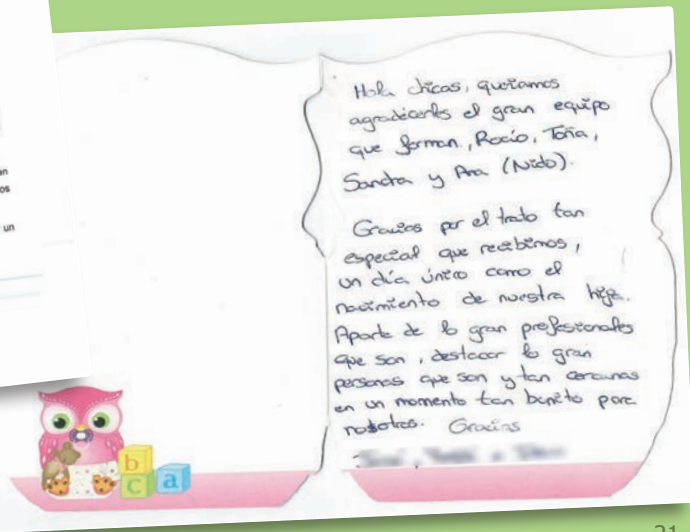 an
os
un
Hola chicas, queríamos
agradecerles el gran equipo
que forman, Rocío, Toña,
Sandra y Ana (Nido).
Gracias por el trato tan
especial que recibimos,
un día único como el
nacimiento de nuestra hija.
Aparte de lo gran profesionales
que son, destacar lo gran
personas que son y tan cercanas
en un momento tan bonito para
nosotros. Gracias
b
c a
21